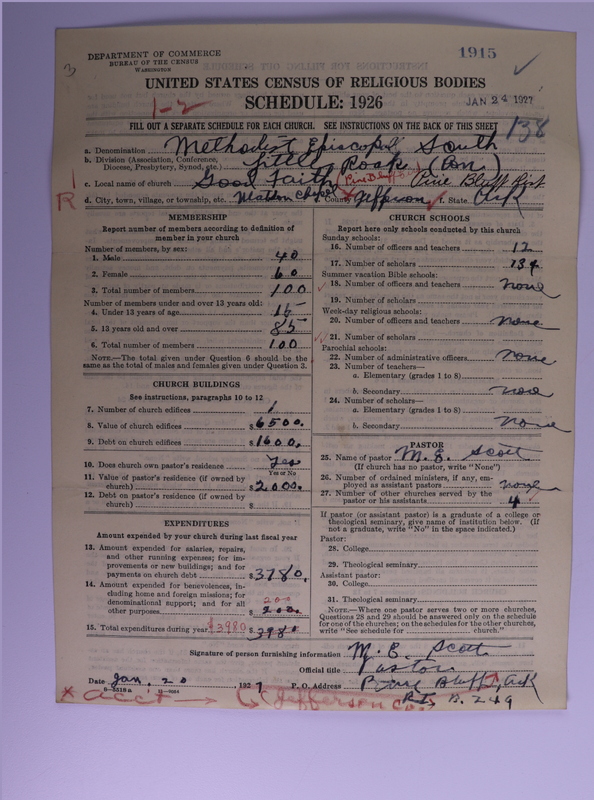 DEPARTMENT OF COMMERCE
BUREAU OF THE CENSUS
WASHINGTON
1915
3
UNITED STATES CENSUS OF RELIGIOUS BODIES
1-2
SCHEDULE: 1926
JAN 24 1927
FILL OUT A SEPARATE SCHEDULE FOR EACH CHURCH. SEE INSTRUCTIONS ON THE BACK OF THIS SHEET
138
a. Denomination Methodist Episcopal South
b. Division (Association, Conference, Diocese, Presbytery, Synod, etc.) Little Rock (Con)
c. Local name of church Good Faith (Pine Bluff Pine Bluff
R
d. City, town, village, or township, etc. County Jefferson f. State Ark
MEMBERSHIP
Report number of members according to definition of member in your church
Number of members, by sex:
1. Male 40
2. Female 60
3. Total number of members 100
Number of members under and over 13 years old:
4. Under 13 years of age 15
5. 13 years old and over 85
6. Total number of members 100
NOTE.—The total given under Question 6 should be the same as the total of males and females given under Question 3.
CHURCH BUILDINGS
See instructions, paragraphs 10 to 12
7. Number of church edifices 1
8. Value of church edifices $6500.
9. Debt on church edifices $1600.
10. Does church own pastor's residence Yes
Yes or No
11. Value of pastor's residence (if owned by church) $2000.
12. Debt on pastor's residence (if owned by church) $
EXPENDITURES
Amount expended by your church during last fiscal year
13. Amount expended for salaries, repairs, and other running expenses; for improvements or new buildings; and for payments on church debt $3780.
14. Amount expended for benevolences, including home and foreign missions; for denominational support; and for all other purposes 200 $200.
15. Total expenditures during year $3980 $3981
CHURCH SCHOOLS
Report here only schools conducted by this church
Sunday schools:
16. Number of officers and teachers 12
17. Number of scholars 134
Summer vacation Bible schools:
18. Number of officers and teachers none
19. Number of scholars
Week-day religious schools:
20. Number of officers and teachers none
21. Number of scholars
Parochial schools:
22. Number of administrative officers none
23. Number of teachers—
a. Elementary (grades 1 to 8)
b. Secondary
24. Number of scholars—
a. Elementary (grades 1 to 8)
b. Secondary none
PASTOR
25. Name of pastor M. E. Scott
(If church has no pastor, write "None")
26. Number of ordained ministers, if any, employed as assistant pastors none
27. Number of other churches served by the pastor or his assistants 4
If pastor (or assistant pastor) is a graduate of a college or theological seminary, give name of institution below. (If not a graduate, write "No" in the space indicated.)
Pastor:
28. College
29. Theological seminary
Assistant pastor:
30. College
31. Theological seminary
NOTE.—Where one pastor serves two or more churches, Questions 28 and 29 should be answered only on the schedule for one of the churches; on the schedules for the other churches, write "See schedule for church."
Signature of person furnishing information M. E. Scott
Official title Pastor
Date Jan. 20 1927 P. O. Address Pine Bluff, Ark
8-5518a 11-9084
R.1, B. 249
* acc't → Jefferson Co.